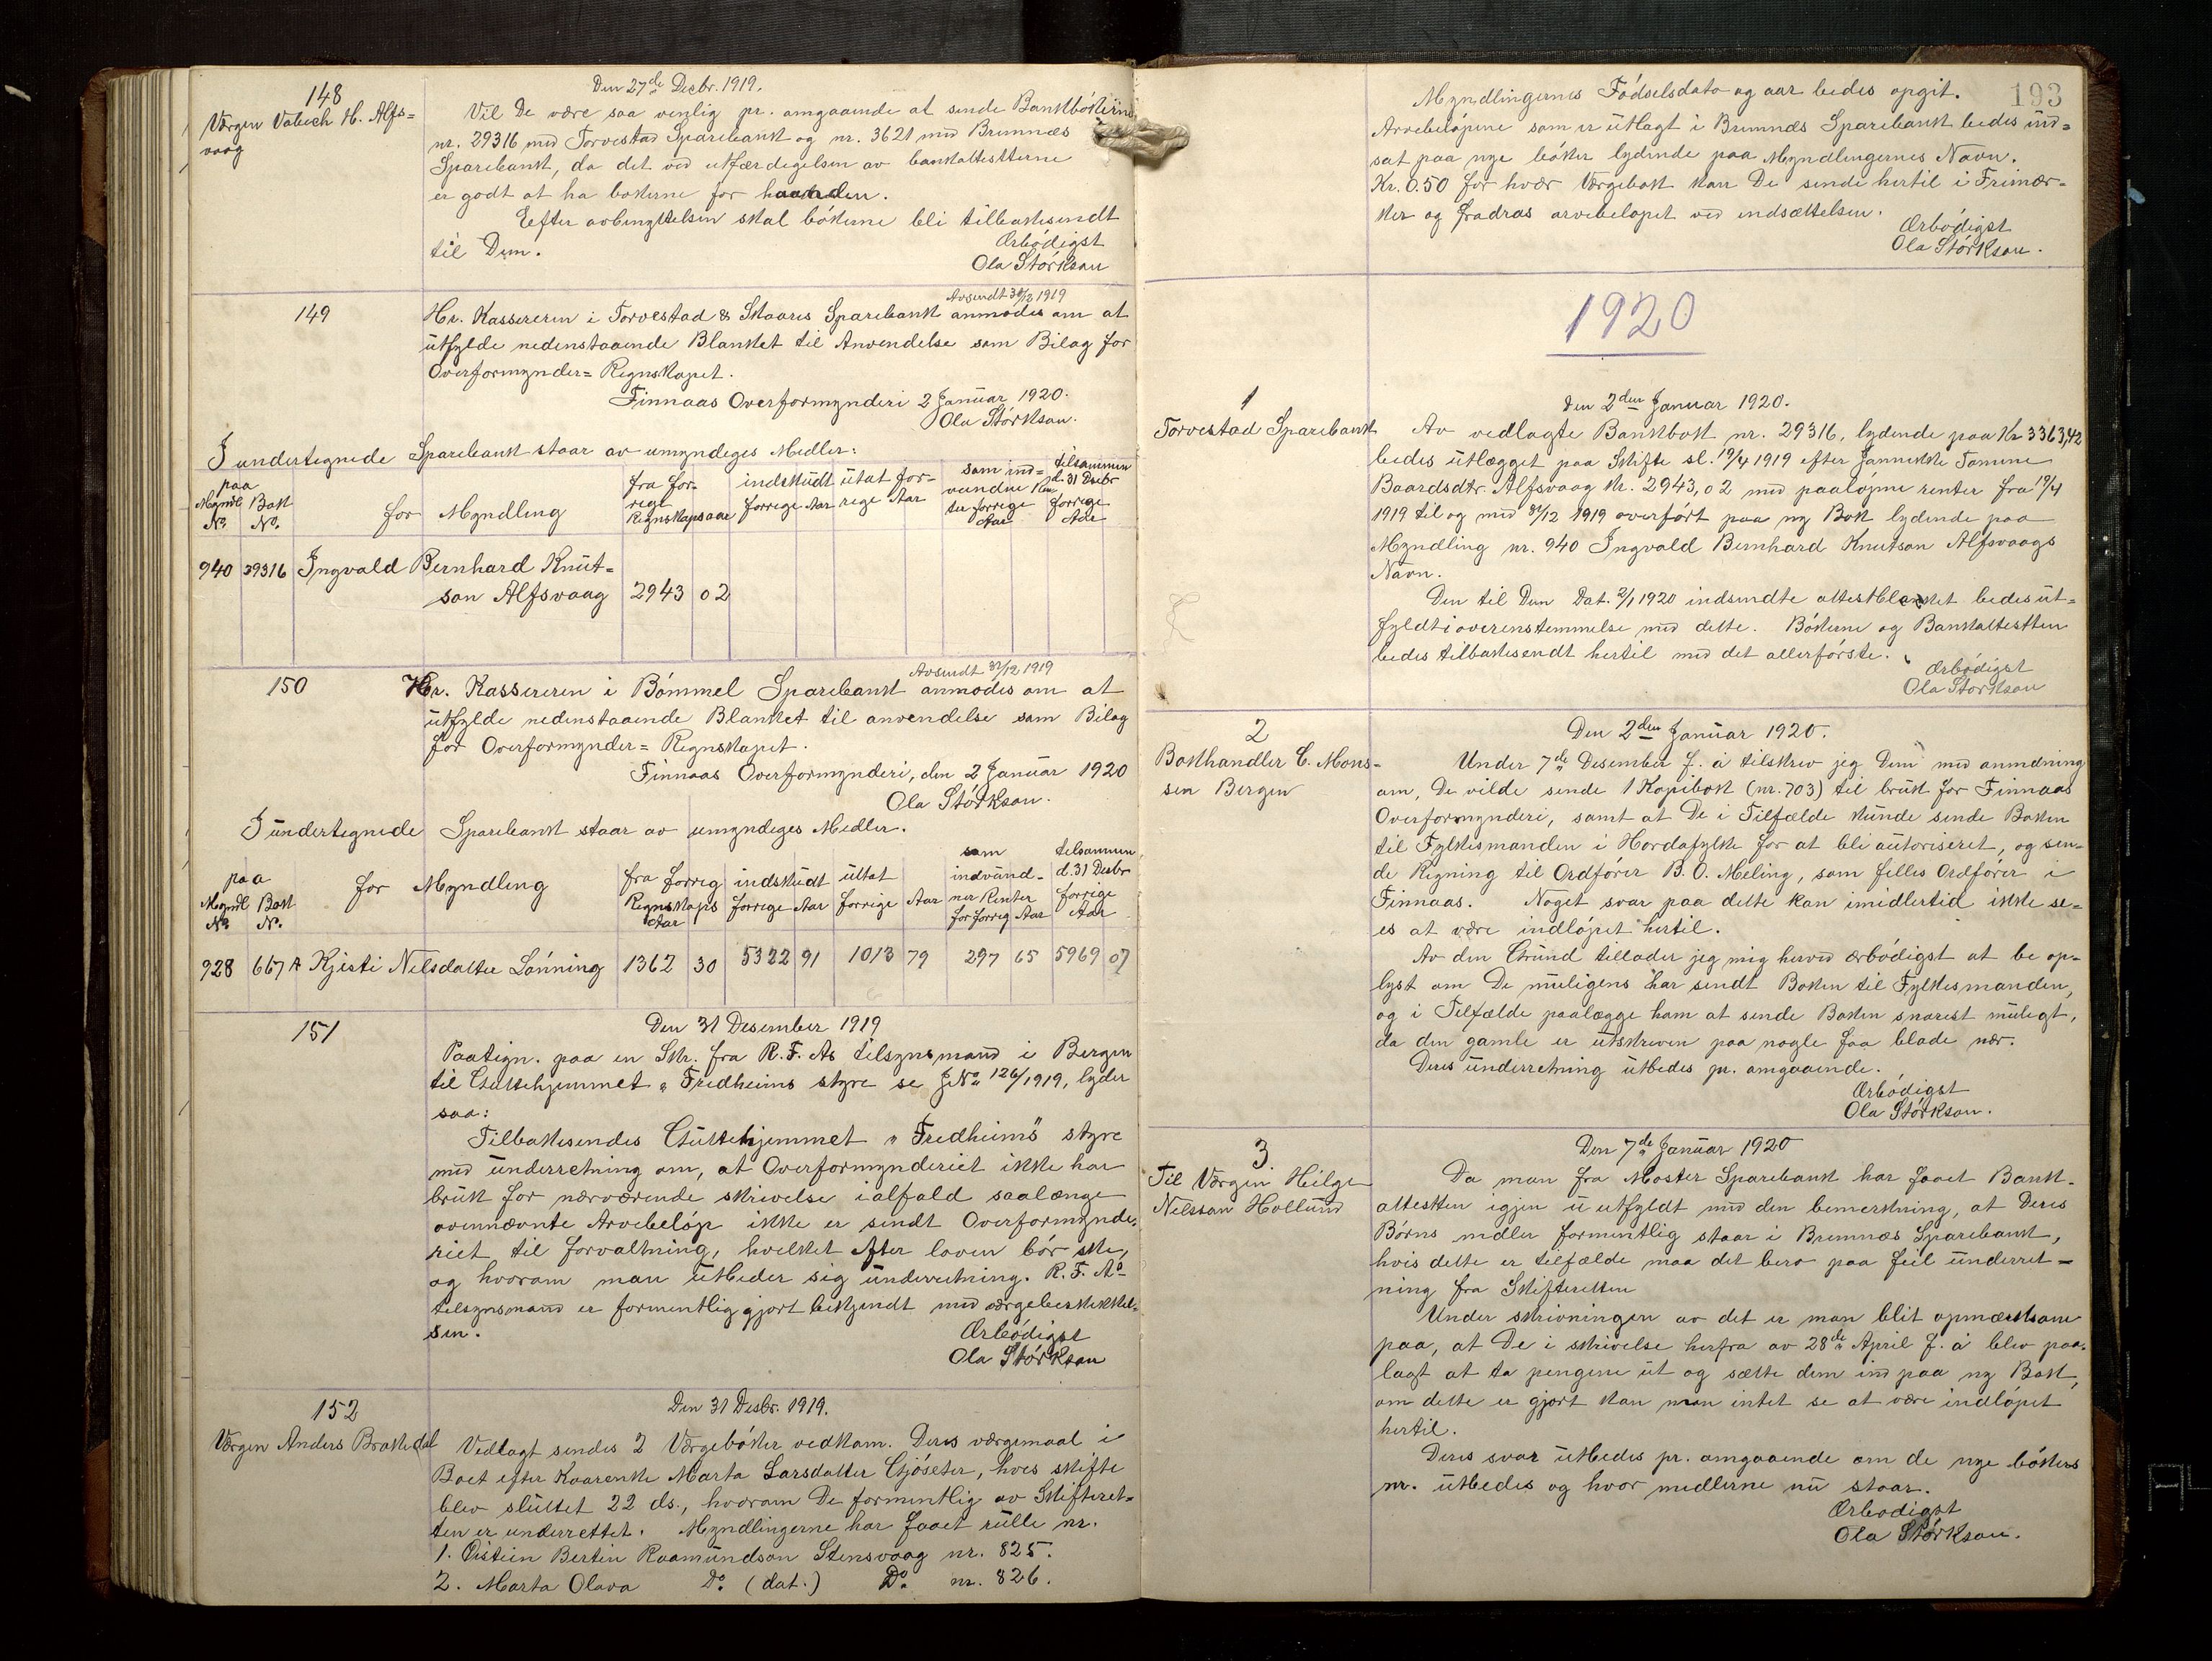 148
Værgen Vabech H. Alfs=
vaag
Den 27de Decbr. 1919.
Vil De være saa venlig pr. omgaaende at sende Bankbökerne
nr. 29316 med Torvestad Sparebank og nr. 3621 med Bremnæs
Sparebank, da det ved utfærdigelsen av bankattestterne
er godt at ha bokerne for haanden.
Eefter avbenyttelsen skal bökerne bli tilbakesendt
til Dem.
Ærbödigst
Ola Störkson
149
Avsendt 30/12 1919
Hr. Kassereren i Torvestad & Skaares Sparebank anmodes om at
utfylde nedenstaaende Blanket til Anvendelse som Bilag for
Overformynder= Regnskapet.
Finnaas Overformynderi 2 Januar 1920.
Ola Störkson.
I undertegnede Sparebank staar av umyndeges Medler:
paa
Myndl Bok
No. No.
for Myndling
fra for-
rege
Regnskapsaar
indskudt
forrige Aar
utat for-
rege Aar
som ind=
vundne Ren-
ter forrige
Aar
tilsammen
d. 31 Desbr
forrege
Aar
940 39316 Ingvald Bernhard Knut=
son Alfsvaag 2943 02
150
Avsendt 31/12 1919
Hr. Kassereren i Bömmel Sparebank anmodes om at
utfylde nedenstaaende Blanket til anvendelse som Bilag
for Overformynder= Regnskapet.
Finnaas Overformynderi, den 2 Januar 1920
Ola Störkson.
I undertegnede Sparebank staar av umyndeges Medler.
paa
Myndl Bok
No. No.
for Myndling
fra forreg
Regnskaps
Aar
indskudt
forrege Aar
uttat
forrige Aar
som
indvund-
ner Renter
for forreg Aar
telsammen
d. 31 Desbr
forrige
Aar
928 667 A Kjisti Nelsdatter Lönning 1362 30 5322 91 1013 79 297 65 5969 07
151
Den 31 Desember 1919
Paatign. paa en Skr. fra R. F. As tilsynsmand i Bergen
til Guttehjemmet „Fredheims styre se J No 126/1919, lyder
saa:
Tilbakesendes Guttehjemmet „Fredheims" styre
med underretning om, at Overformynderiet ikke har
bruk for nærværende skrivelse ialfald saalænge
ovennævnte Arvebelöp ikke er sendt Overformynde,
riet til forvaltning, hvelket efter loven bör ske,
og hvorom man utbeder sig underretning. R. F. As
telsynsmand er formentlig gjort bekjendt med værgebeskikkel-
sen.
Ærbödigst
Ola Störkson
152
Værgen Anders Brakedal
Den 31 Desbr. 1919.
Vedlagt sendes 2 Værgeböker vedkom. Deres værgemaal i
Boet efter Kaarenke Marta Larsdatter Gjöseter, hves skifte
blev sluttet 22 ds., hvorom De formentlig av Skifteret=
ten er underrettet. Myndlingerne har faaet rulle nr.
1. Östein Bertin Raamundson Stensvaag nr. 825.
2. Marta Olava Do (dat.) Do nr. 826.
193
Myndlingernes Födselsdato og aar bedes opgit.
Arvebelöpene som er utlagt i Bremnæs Sparebank bedes ind=
sat paa nye böker lydende paa Myndlingernes Navn.
Kr. 0.50 for hvær Værgebok kan De sende hertil i Frimær=
ker og fradras arvebelopet ved indsættelsen.
Ærbödigst
Ola Störkson.
1920
1
Torvestad Sparebank
Den 2den Januar 1920.
Av vedlagte Bankbok nr. 29316, lydende paa Kr 3363,42
bedes utlægget paa Skifte sl. 19/4 1919 efter Jannikke Tomine
Baardsdtr. Alfsvaag Kr. 2943,02 med paalöpne renter fra 19/4
1919 til og med 31/12 1919 overfört paa ny Bok lydende paa
Myndling nr. 940 Ingvald Bernhard Knutson Alfsvaags
Navn.
Den til Dem Dat. 2/1 1920 indsendte attestblanket bedes ut=
fyldt i overenstemmelse med dette. Bökerne og Bankattestten
bedes tilbakesendt hertil med det allerförste.
Ærbödigst
Ola Störkson
2
Bokhandler C. Mons=
sen Bergen
Den 2den Januar 1920.
Under 7de Desember f. å tilskrev jeg Dem med anmdning
om, De vilde sende 1 Kopibok (nr. 703) til bruk for Finnaas
Overformynderi, samt at De i Tilfælde kunde sende Boken
til Fylkesmanden i Hordafylke for at bli autoriseret, og sen=
de Regning til Ordförer B. O. Meling, som felles Ordförer i
Finnaas. Noget svar paa dette kan imidlertid ikke se=
es at være indlöpet hertil.
Av den Grund tillader jeg mig herved ærbödigst at be op=
lyst om De muligens har sendt Boken til Fylkesmanden,
og i Telfælde paalægge ham at sende Boken snarest mulegt,
da den gamle er utskreven paa nogle faa blade nær.
Deres underretning utbedes pr. omgaaende.
Ærbödigst
Ola Störkson.
3.
Til Værgen Helge
Nelsson Hollund
Den 7de Januar 1920
Da man fra Moster Sparebank har faaet Bank-
attestten igjen u utfyldt med den bemerkning, at Deres
Börns medler formentlig staar i Bremnæs Sparebank,
hvis dette er tilfælde maa det bero paa feil underret=
ning fra Skifteretten
Under skrivningen av det er man blit opmærksom
paa, at De i skrivelse herfra av 28de April f. å blev paa-
lagt at ta pengene ut og sætte dem ind paa ny Bok,
om dette er gjort kan man intet se at være indlöpet
hertil.
Deres svar utbedes pr. omgaaende om de nye bökers
nr. utbedes og hvor medlerne nu staar.
Ærbodigst
Ola Störkson.